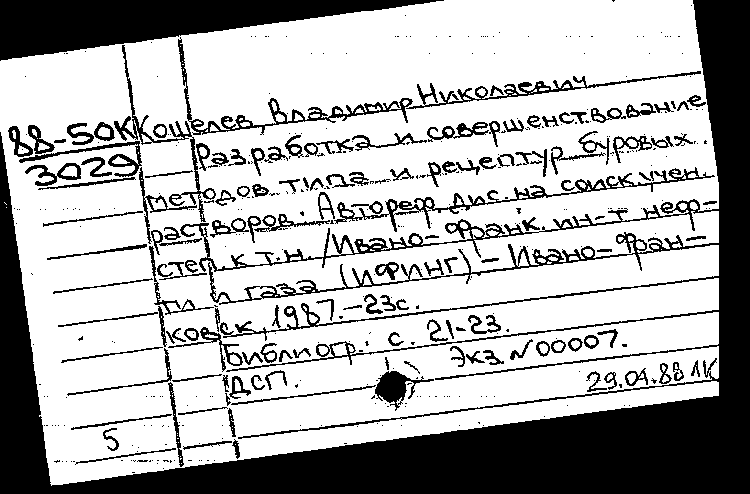 88-50К Кошелев, Владимир Николаевич
3029 Разработка и совершенствование
методов типа и рецептур буровых
растворов. Автореф. дис. на соиск. учен.
степ. к.т.н. /Ивано-Франк. ин-т неф-
ти и газа (ИФИНГ).- Ивано-Фран-
ковск, 1987.-23с.
Библиогр.: с. 21-23.
ДСП. Экз. N 00007.
29.01.88 1К
5